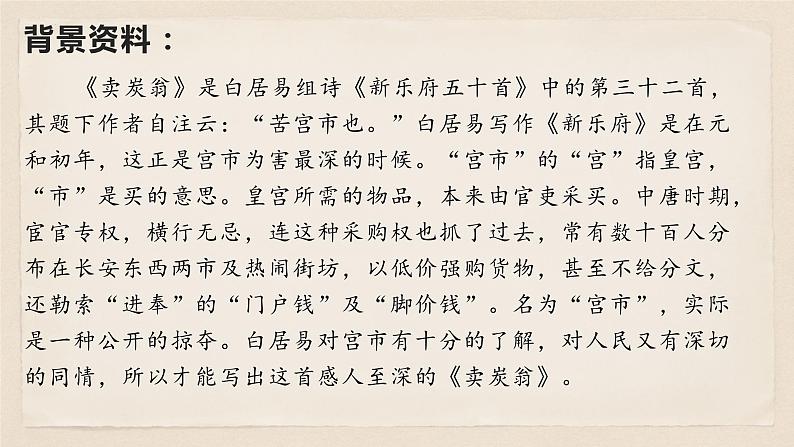 背景资料：
《卖炭翁》是白居易组诗《新乐府五十首》中的第三十二首，
其题下作者自注云：“苦宫市也。”白居易写作《新乐府》是在元
和初年，这正是宫市为害最深的时候。“宫市”的“宫”指皇宫，
“市”是买的意思。皇宫所需的物品，本来由官吏采买。中唐时期，
宦官专权，横行无忌，连这种采购权也抓了过去，常有数十百人分
布在长安东西两市及热闹街坊，以低价强购货物，甚至不给分文，
还勒索“进奉”的“门户钱”及“脚价钱”。名为“宫市”，实际
是一种公开的掠夺。白居易对宫市有十分的了解，对人民又有深切
的同情，所以才能写出这首感人至深的《卖炭翁》。